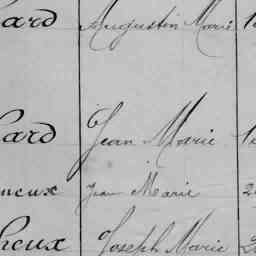 ard Augustin Marie 1
ard Jean Marie 1
neux Jean Marie 2
heux Joseph Marie 2